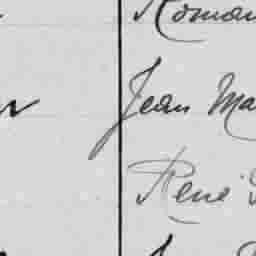 Roman
Jean Ma
René